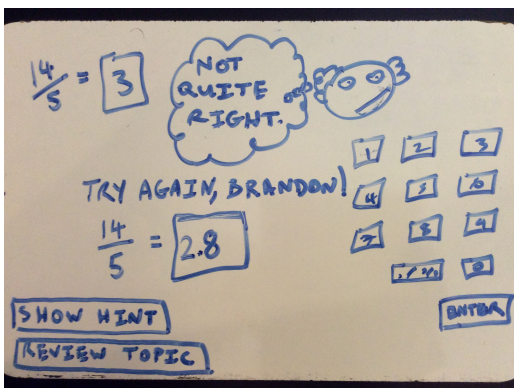 14/5 = 3
NOT
QUITE
RIGHT.
TRY AGAIN, BRANDON!
14/5 = 2.8
1 2 3
4 5 6
7 8 9
0
ENTER
SHOW HINT
REVIEW TOPIC